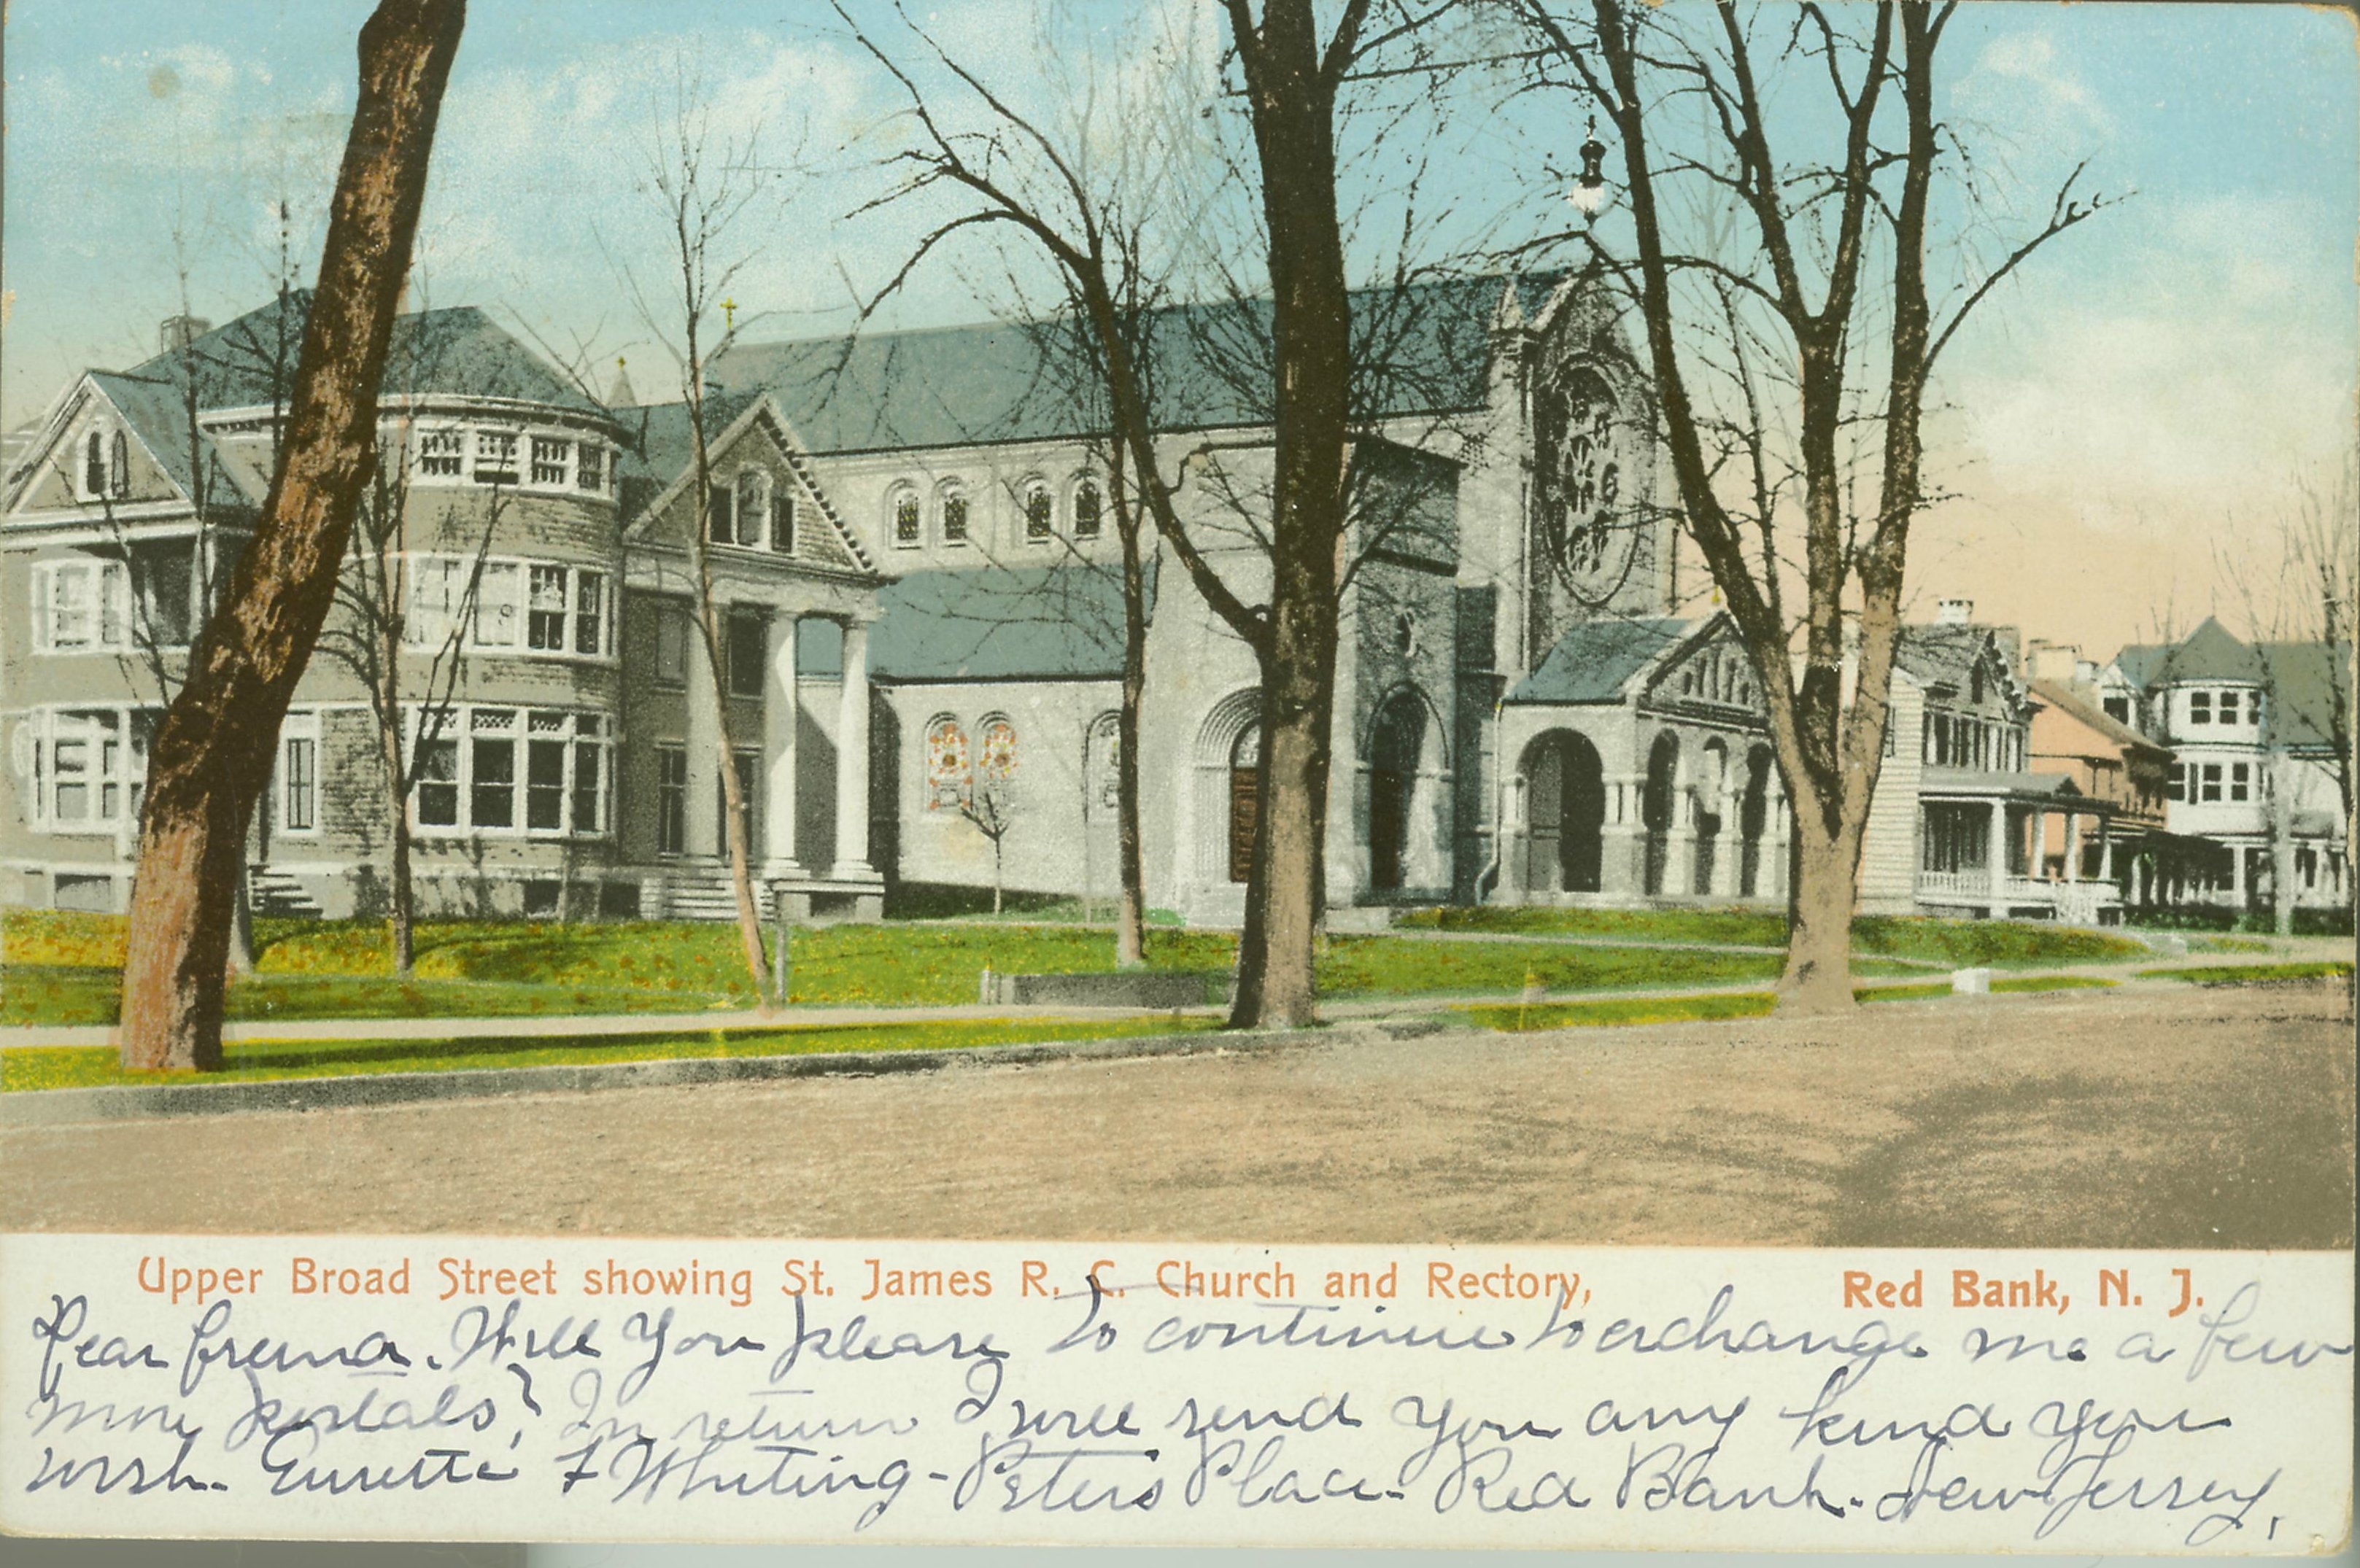 Upper Broad Street showing St. James R. C. Church and Rectory, Red Bank, N. J.
Dear Will You please to continue to exchange me a few
more postals? In return I will send you any kind you
wish. F Whiting - Peters Place - Red Bank - New Jersey,